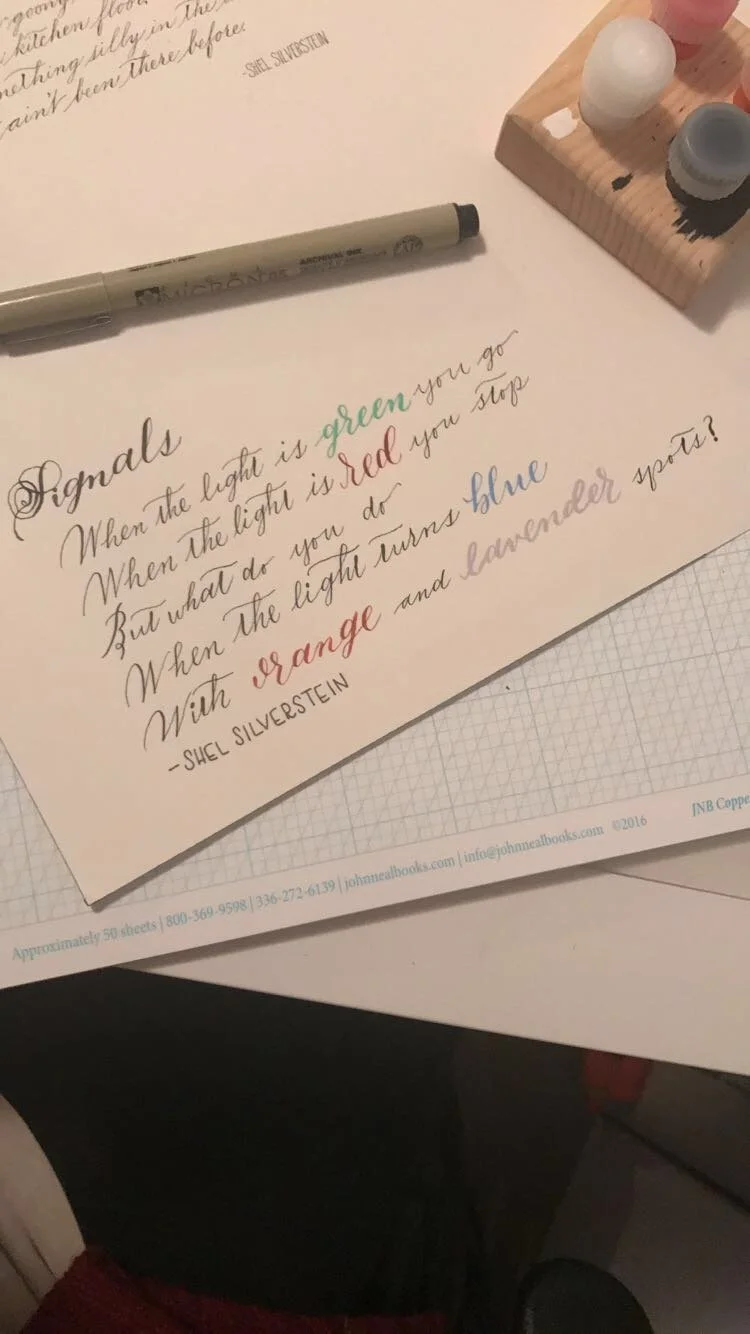 kitchen floor
silly in the
ain't been there before.
-SHEL SILVERSTEIN
MICRON
ARCHIVAL INK
Signals
When the light is green you go
When the light is red you stop
But what do you do
When the light turns blue
With orange and lavender spots?
-SHEL SILVERSTEIN
Approximately 50 sheets | 800-369-9598 | 336-272-6139 | johnnealbooks.com | info@johnnealbooks.com ©2016 JNB Coppe